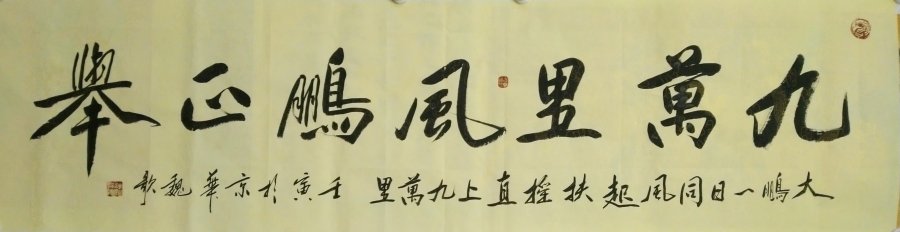 九萬里風鵬正舉
大鵬一日同風起扶摇直上九萬里 壬寅於京華魏歌